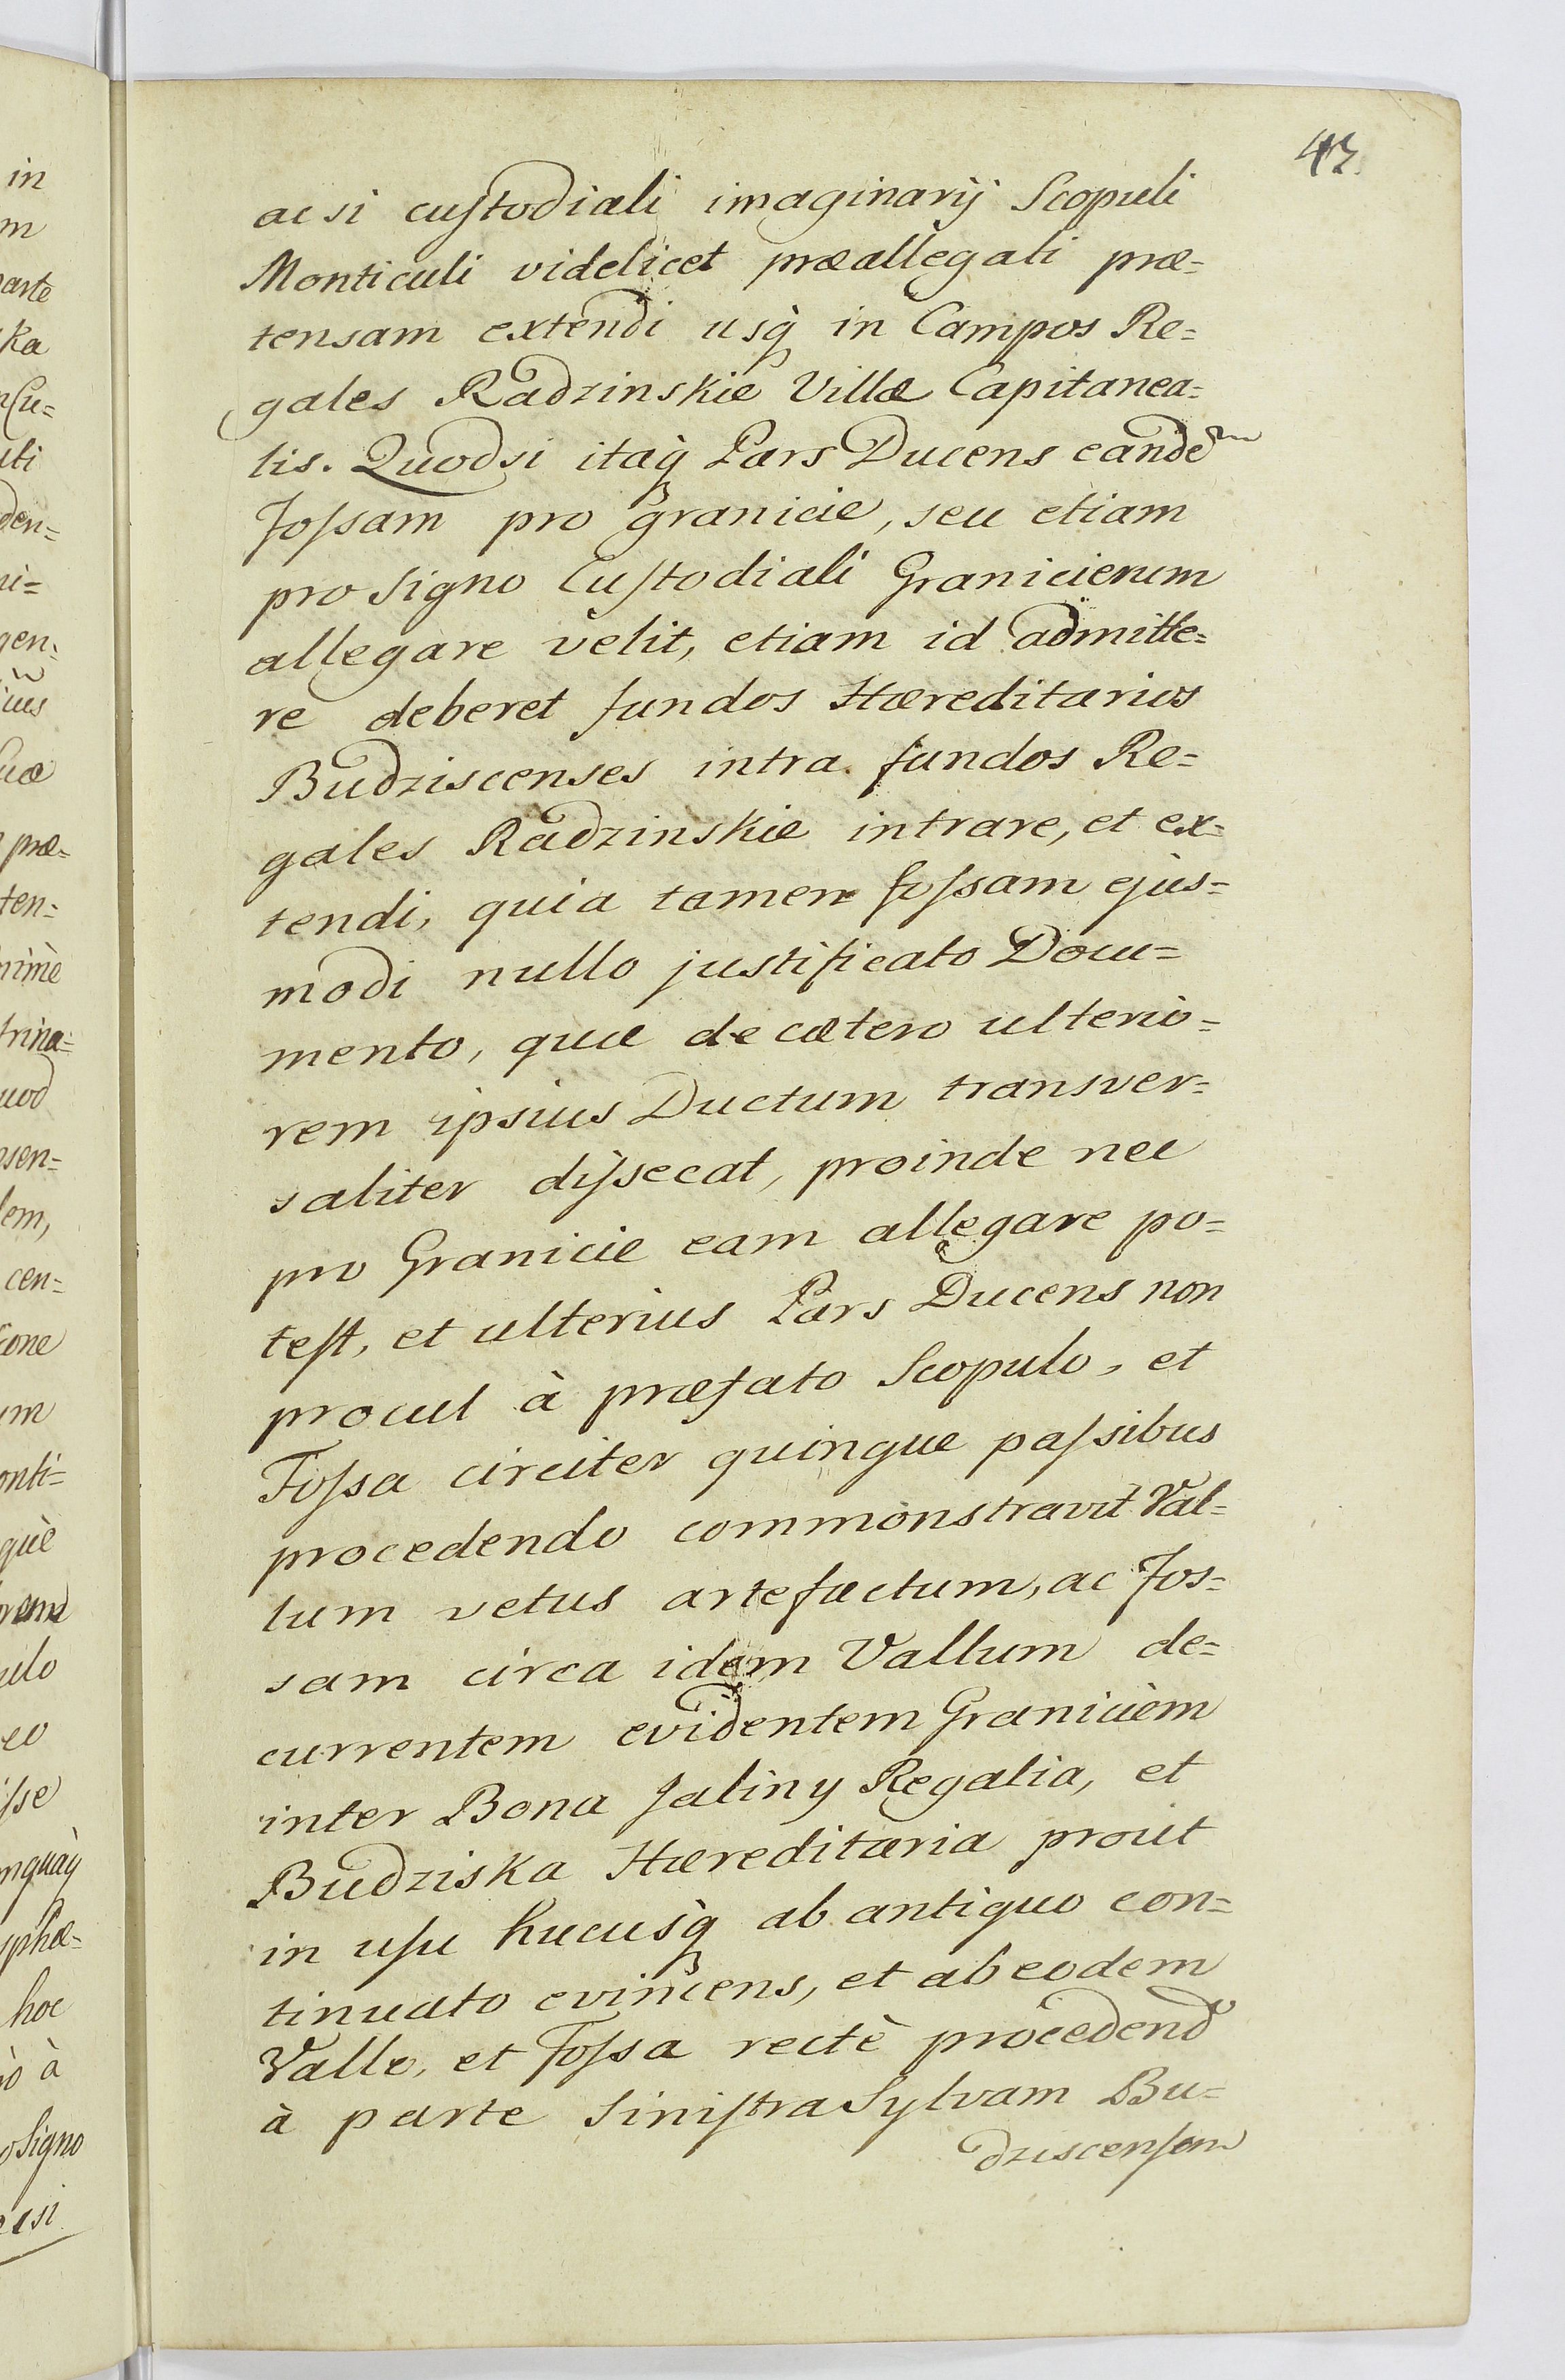 43.
ac si cuſtodiali imaginarij Scopuli
Monticuli videlicet præallegati præ=
tensam extendi usq̀ in Campos Re=
gales Radzinskie Villæ Capitanea=
lis. Quodsi itaq̀ Pars Ducens eandem
foſsam pro granicie, seu etiam
pro Signo Cuſtodiali Granicierum
allegare velit, etiam id admitte=
re deberet fundos Hæreditarios
Budziscenses intra fundos Re=
gales Radzinskie intrare, et ex=
tendi, quia tamen foſsam ejus=
modi nullo justificato Docu=
mento, quæ de cætero ulterio=
rem ipsius Ductum transver=
saliter diſsecat, proinde nec
pro Granicie eam allegare po=
teſt, et ulterius Pars Ducens non
procul à præfato Scopulo, et
Foſsa circiter quinque paſsibus
procedendo commonstravit Val=
lum vetus artefactum, ac Fos=
sam circa idem Vallum de=
currentem evidentem Graniciem
inter Bona Jaliny Regalia, et
Budziska Hæreditaria prout
in uſu hucusq̀ ab antiquo con=
tinuato evincens, et ab eodem
Vallo, et Foſsa rectè procedend
à parte Siniſtra Sylvam Bu=
dziscenſem
in
m
parte
ka
Cu=
uti
den=
ni=
gen=
ius
præ=
ten=
nimè
trina=
uod
sen=
lem,
cen=
ione
um
onti=
què
ulo
eo
iſse
phæ=
hoc
iò à
o Signo
ac si